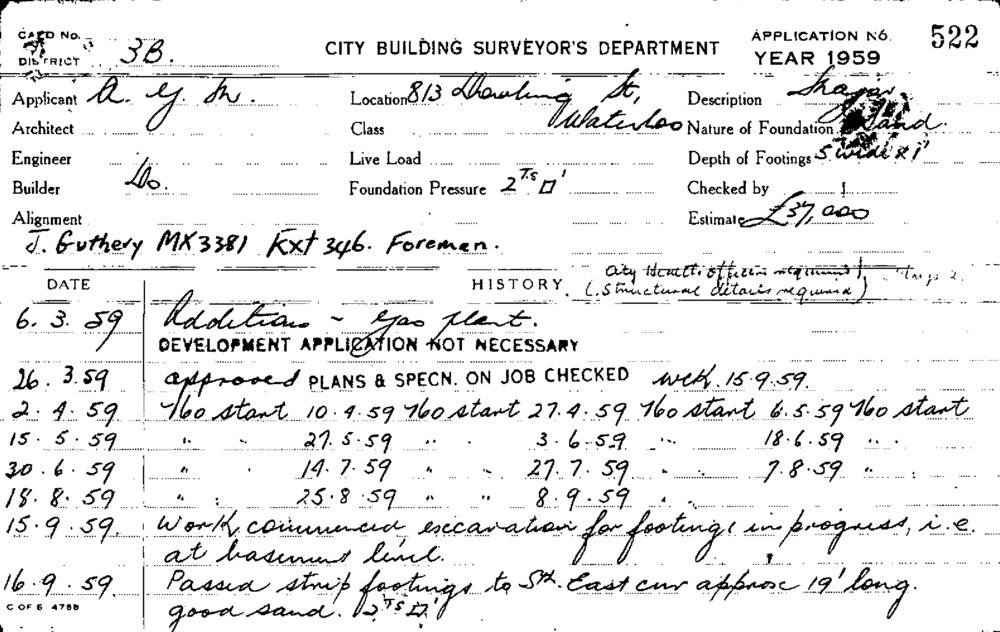 CARD No. 3B. CITY BUILDING SURVEYOR'S DEPARTMENT APPLICATION No. 522
DISTRICT YEAR 1959
Applicant A. G. M. Location 813 Dowling St, Waterloo Description
Architect Class Nature of Foundation Sand.
Engineer Live Load Depth of Footings 5' wide x 1'
Builder Do. Foundation Pressure 2 Ts □' Checked by
Alignment Estimate £37,000
J. Guthery MX3381 Ext 346. Foreman.
City Health officers required
DATE HISTORY (Structural details required)
6. 3. 59 Additions - Gas plant.
DEVELOPMENT APPLICATION NOT NECESSARY
26. 3. 59 approved PLANS & SPECN. ON JOB CHECKED WCK. 15.9.59.
2. 4. 59 No start 10.4.59 No start 27.4.59 No start 6.5.59 No start
15. 5. 59 " " 27.5.59 " " 3.6.59 " " 18.6.59 " "
30. 6. 59 " " 14.7.59 " " 27.7.59 " " 7.8.59 " "
18. 8. 59 " " 25.8.59 " " 8.9.59 " "
15. 9. 59. Work commenced excavation for footings in progress, i.e.
at basement level.
16. 9. 59. Passed strip footings to Sth. East cnr approx 19' long.
C OF S 4788 good sand. 2 Ts □'